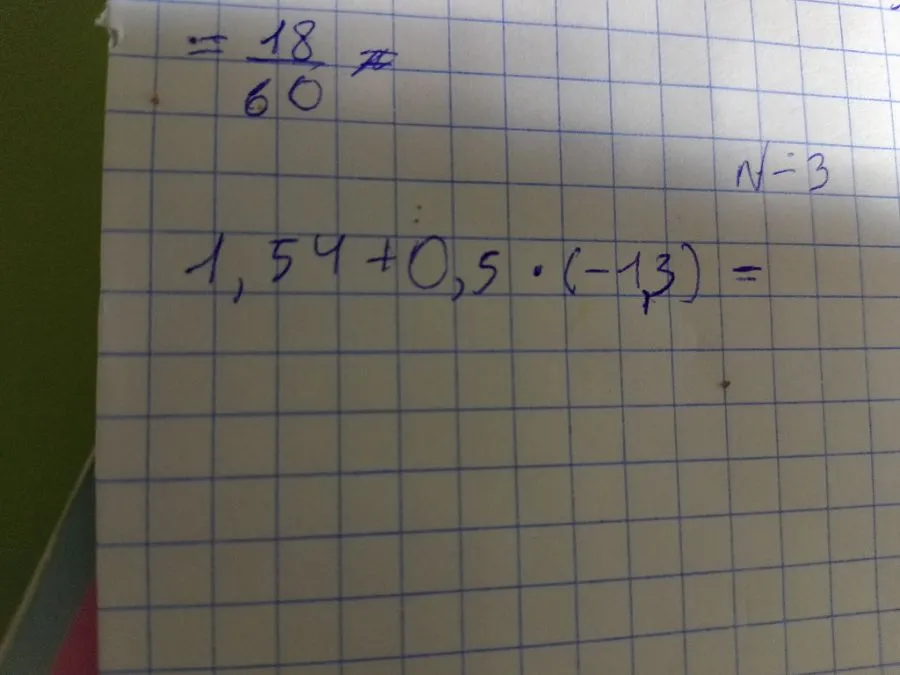 = 18/60
N-3
1,54 + 0,5 · (-1,3) =